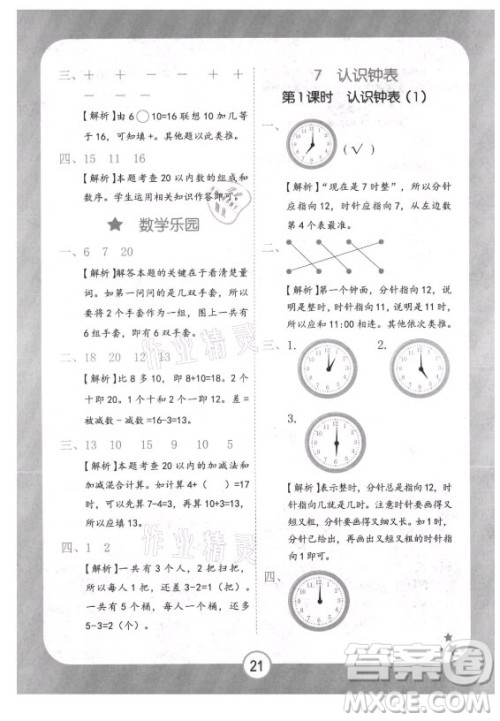 三、+ + - - + +
- - + - +
【解析】由 6○10=16 联想 10 加几等
于 16，可知填+。其他题以此类推。
四、15 11 16
【解析】本题考查 20 以内数的组成和
数序。学生运用相关知识作答即可。
★ 数学乐园
一、6 7 20
【解析】解答本题的关键在于看清楚量
词。如第一问问的是几双手套，所以
要将 2 个手套作为一组。图上一共有
6 组手套，所以有 6 双手套。
二、18 20 12 13
【解析】比 8 多 10，即 8+10=18。2 个
十是 20。10+2=12。被减数是 16，差=
被减数-减数=16-3=13。
三、13 10 15 9 5
【解析】本题考查 20 以内的加减法和
加减混合计算。如计算 4+（ ）=17
时，可先算 7-4=3，再算 10+3=13，
所以应填 13。
四、1 2
【解析】一共有 3 个桶，2 个小朋友，
所以每人 1 把，还剩 3-2=1（把）。
一共有 5 个桶，每人 1 个桶，还多
5-3=2（个）。
7 认识钟表
第 1 课时 认识钟表（1）
一、
（√）
【解析】“现在是 7 时整”，所以分针
应指向 12，时针应指向 7，从左边数
第 4 个表最准。
二、
【解析】第一个钟面，分针指向 12，说
明是整时。时针指向 11，说明是 11 时，
所以应和 11:00 相连。其他题以此类推。
三、1.
2.
【解析】表示整时，分针总是指向 12，
时针指向几就是几时。注意时针要画得又
短又粗，分针要画得又细又长。如 1 时，
分针已经画出来了，所以只要画出时针指
向 1 即可。
四、
21
作业精灵
作业精灵
答案圈
MXQE.COM